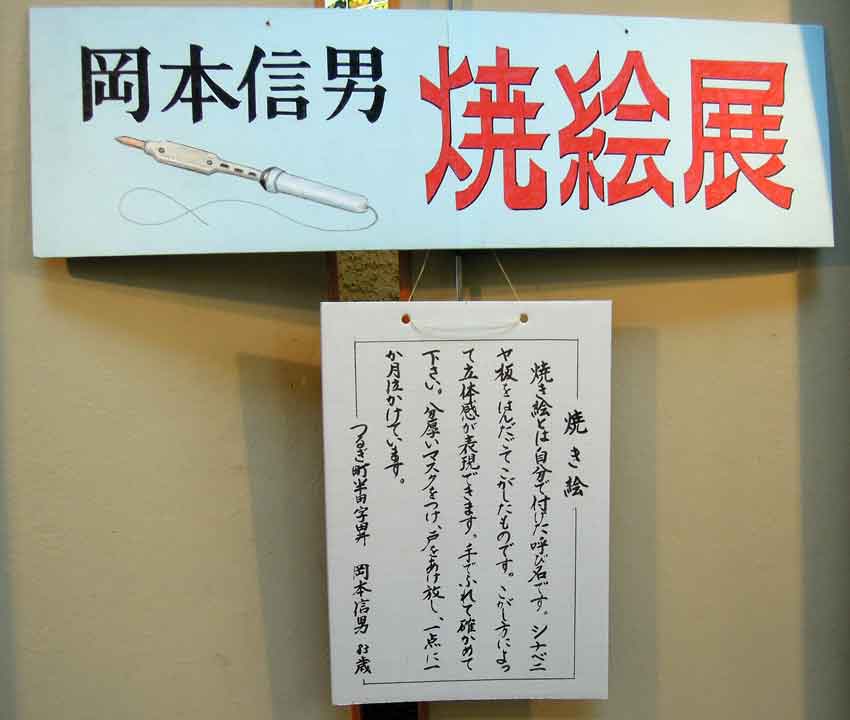 岡本信男
焼絵展
焼き絵
焼き絵とは自分で付けた呼び名です。シナベニ
ヤ板をはんだごてこがしたものです。こがし方によっ
て立体感が表現できます。手でふれて確かめて
下さい。分厚いマスクをつけ、戸をあけ放し、一点に一
か月位かけています。
つるぎ町半田字田井 岡本信男 83歳